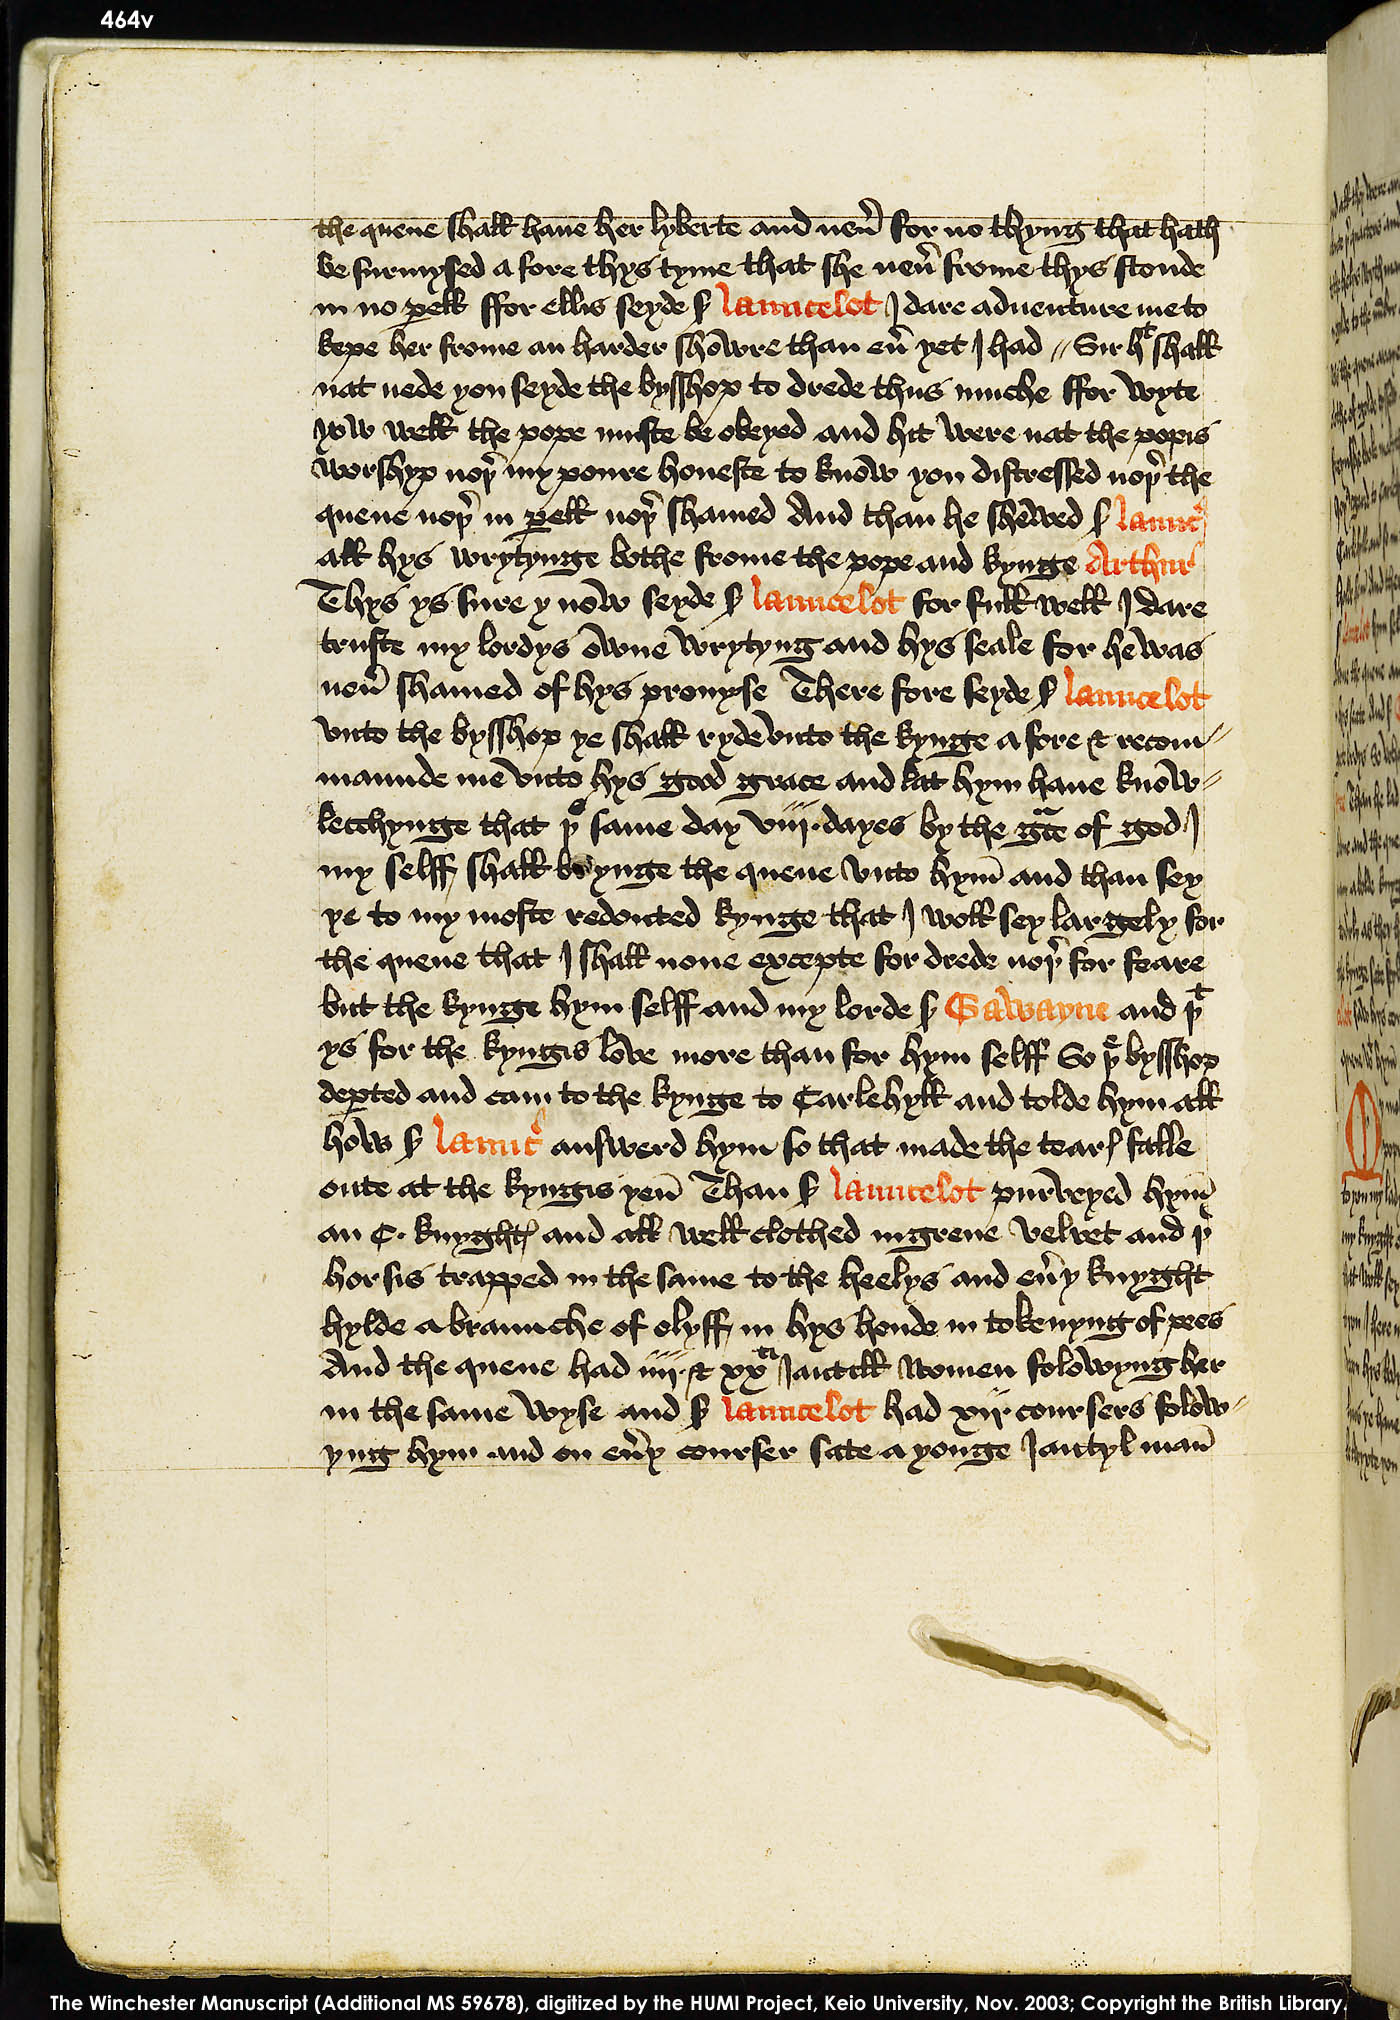 464v
the quene shall haue her lyberte and neũ for no thyng that hath
be surmysed a fore thys tyme that she neũ frome thys stonde
in no ꝑell ffor ellis seyde ẜ launcelot I dare aduenture me to
kepe her frome an harder showre than eũ yet I had // Sir hᵗ shall
nat nede you seyde the bysshop to drede thus muche ffor wyte
yow well the pope muste be obeyed and hit were nat the popis
worshyp noþ̉ my poure honeste to know you distressed noþ̉ the
quene noþ̉ in ꝑell noþ̉ shamed And than he shewed ẜ launc̉
all hys wrytynge bothe frome the pope and kynge Arthur
Thys ys sure y now seyde ẜ launcelot for full well I dare
truste my lordys owne wrytyng and hys seale for he was
neũ shamed of hys promyse There fore seyde ẜ launcelot
vnto the bysshop ye shall ryde vnto the kynge a fore & recom//
maunde me vnto hys good grace and lat hym haue know//
lecchynge that þᵉ same day viij · dayes by the gͣce of god I
my selff shall brynge the quene vnto hym̄ and than sey
ye to my moste redouted kynge that I woll sey largely for
the quene that I shall none excepte for drede noþ̉ for feare
but the kynge hym selff and my lorde ẜ Gawayne and þᵗ
ys for the kyngis love more than for hym selff So þᵉ bysshop
deꝑted and cam to the kynge to Carlehyll and tolde hym all
how ẜ launc̉ answerd hym so that made the tearꝭ falle
oute at the kyngis yen̄ Than ẜ launcelot purveyed hym̄
an C · knyghtꝭ and all well clothed in grene velvet and þ̉
horsis trapped in the same to the heelys and eũy knyght
hylde a braunche of olyff in hys honde in tokenyng of pees
And the quene had iiij · & xxᵗⁱ Jantill women folowyng her
in the same wyse and ẜ launcelot had xij coursers folow//
yng hym and on eũy courser sate a yonge Jantyl man̄
The Winchester Manuscript (Additional MS 59678), digitized by the HUMI Project, Keio University, Nov. 2003; Copyright the British Library.